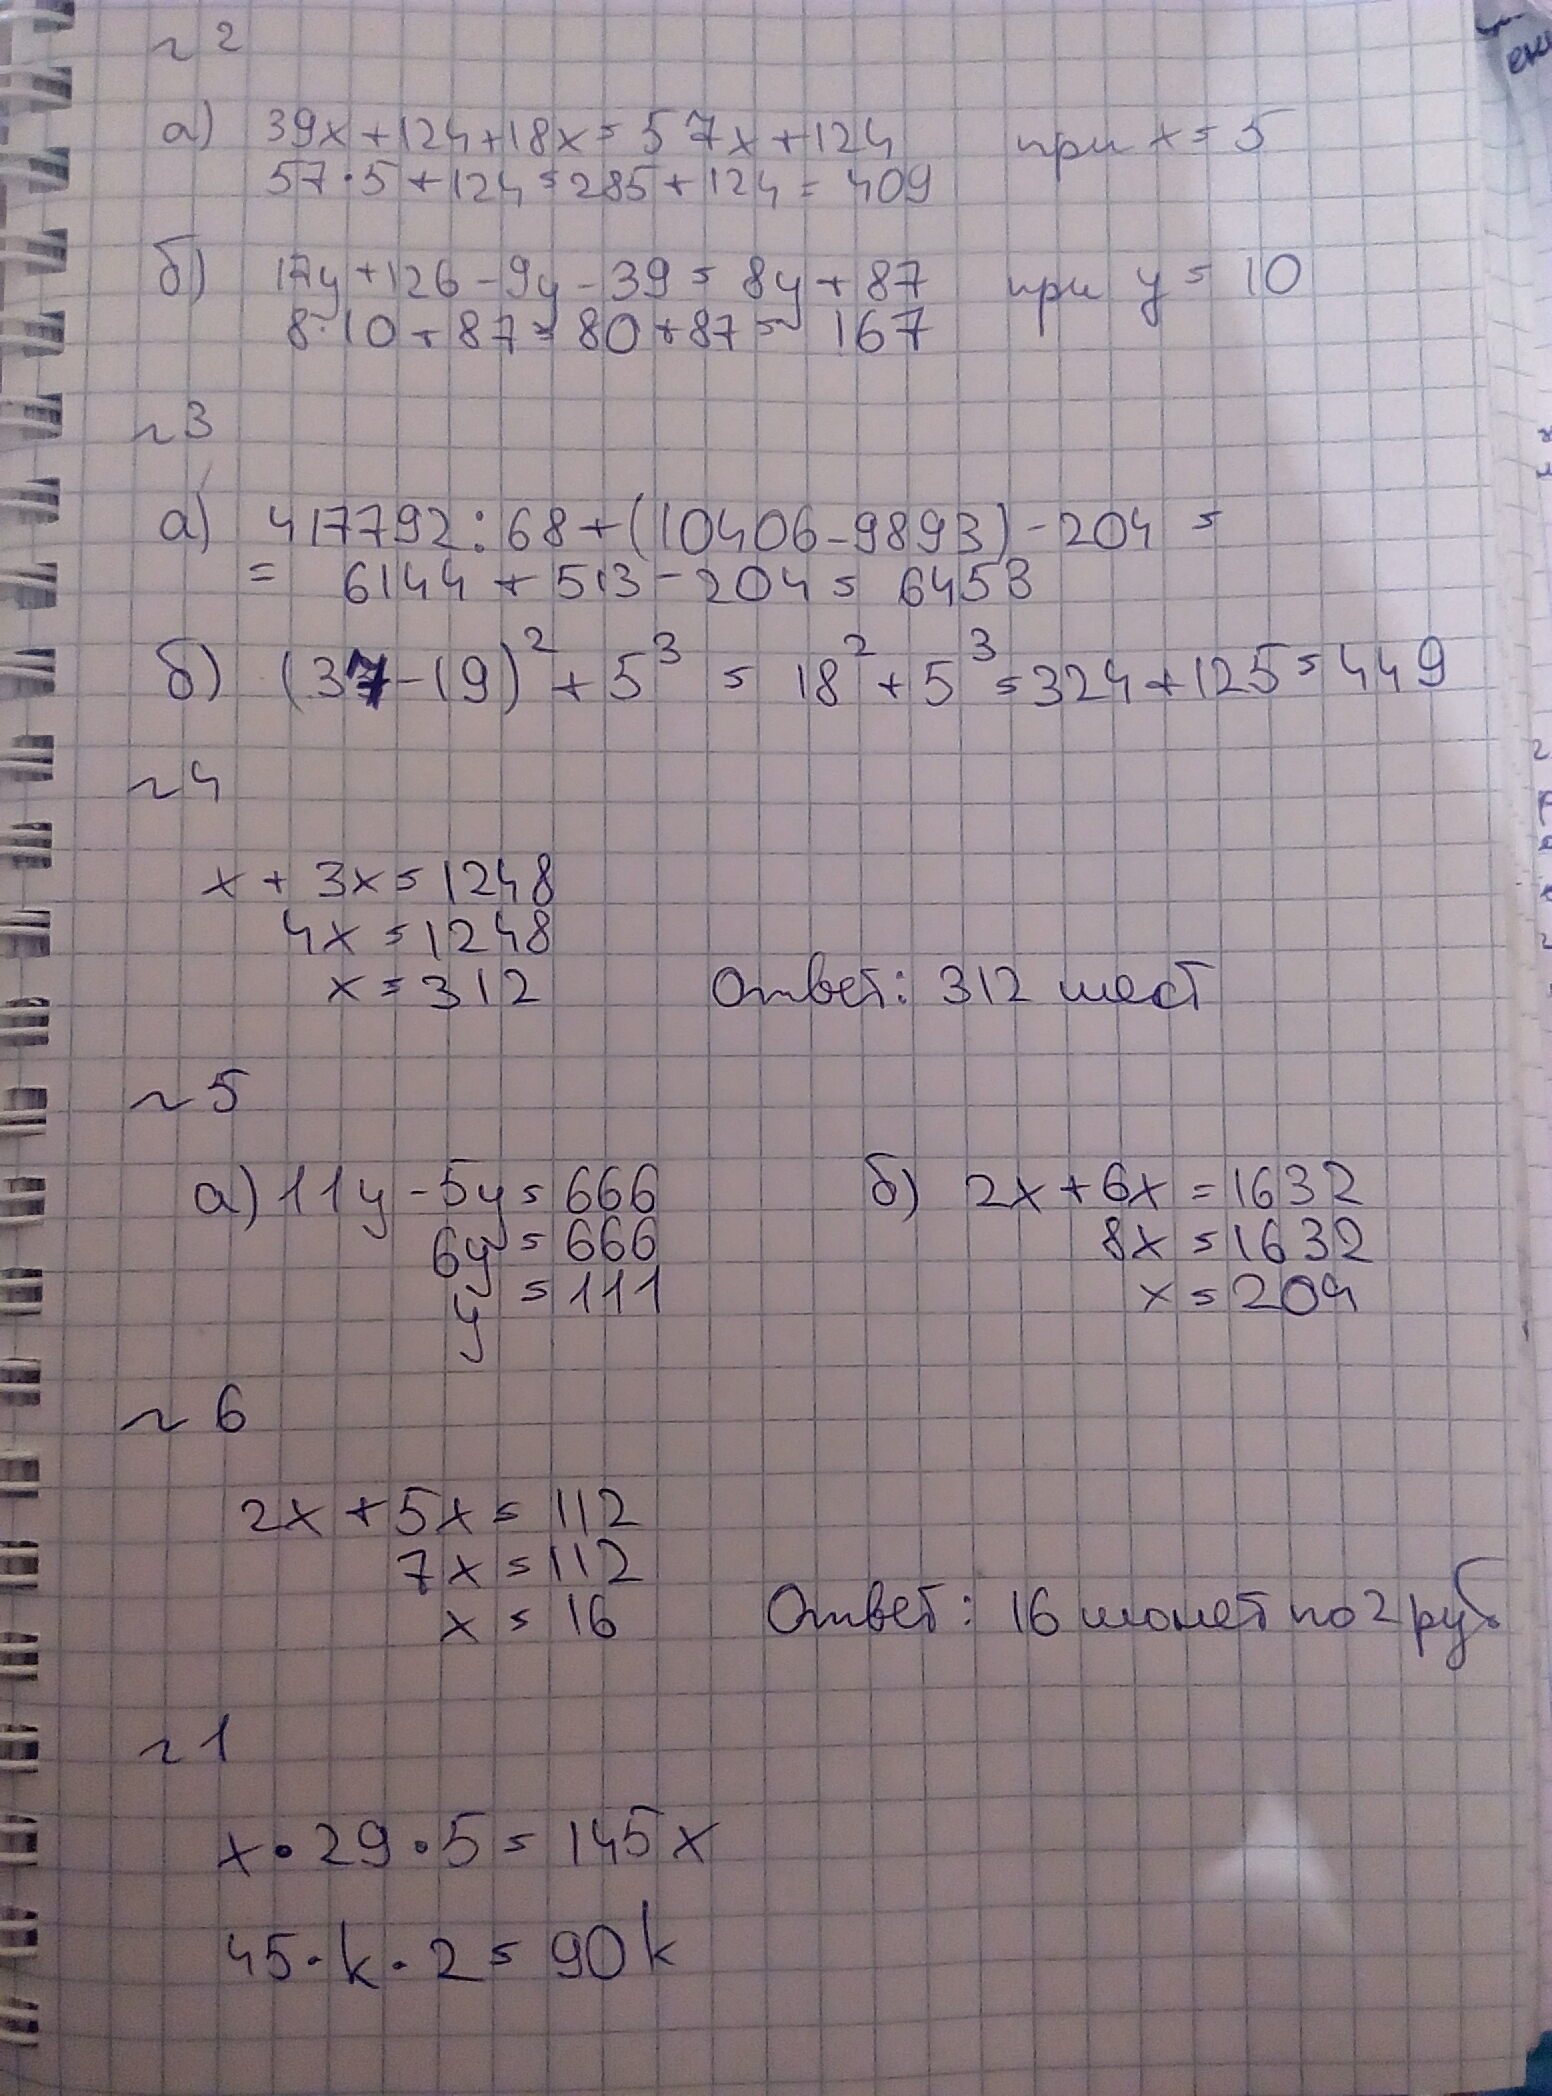 ~ 2
а) 39x+124+18x=57x+124 при x=5
57·5+124=285+124=409
б) 17y+126-9y-39=8y+87 при y=10
8·10+87=80+87=167
~3
а) 417792:68+(10406-9893)-204=
= 6144+513-204=6453
б) (37-19)²+5³=18²+5³=324+125=449
~4
x+3x=1248
4x=1248
x=312 Ответ: 312 мест
~5
а) 11y-5y=666 б) 2x+6x=1632
6y=666 8x=1632
y=111 x=204
~6
2x+5x=112
7x=112
x=16 Ответ: 16 монет по 2 руб
~1
x·29·5=145x
45·k·2=90k